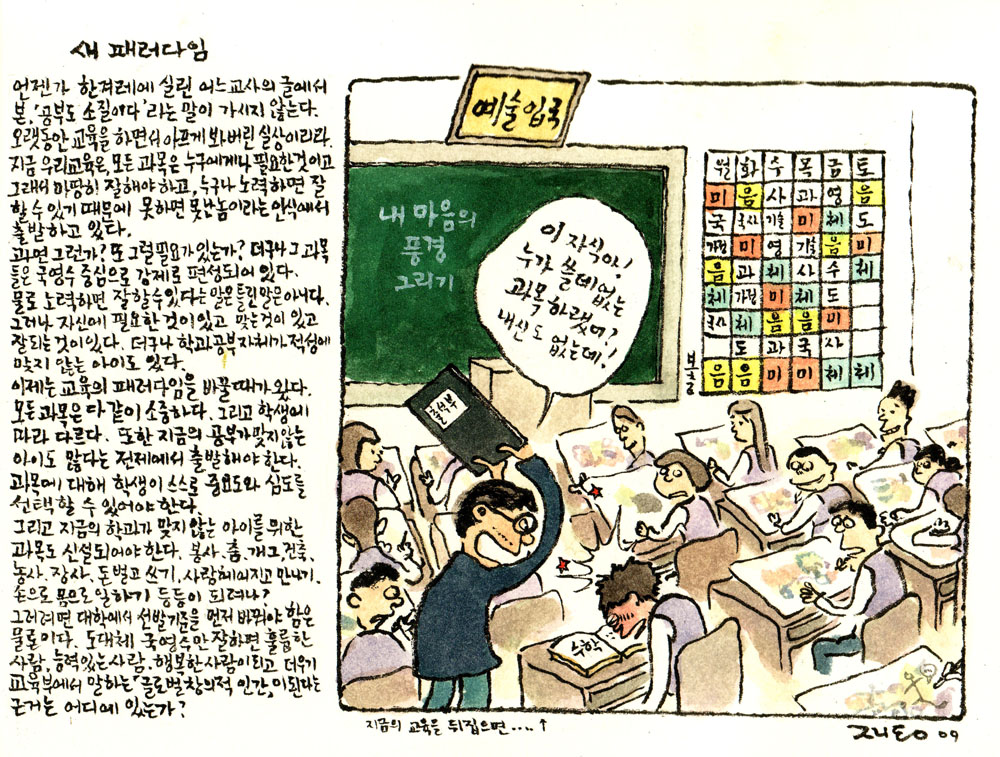 새 패러다임
언젠가 한겨레에 실린 어느교사의 글에서
본, '공부도 소질이다'라는 말이 가시지 않는다.
오랫동안 교육을 하면서 아프게 봐버린 실상이리라.
지금 우리교육은, 모든 과목은 누구에게나 필요한것이고
그래서 마땅히 잘해야 하고, 누구나 노력하면 잘
할 수 있기 때문에 못하면 못난놈이라는 인식에서
출발하고 있다.
과연 그런가? 또 그럴필요가 있는가? 더구나 그 과목
들은 국영수 중심으로 강제로 편성되어 있다.
물론 노력하면 잘할수있다는 말은 틀린 말은 아니다.
그러나 자신에 필요한 것이 있고 맞는것이 있고
잘되는것이 있다. 더구나 학과공부자체가 적성에
맞지 않는 아이도 있다.
이제는 교육의 패러다임을 바꿀때가 왔다.
모든 과목은 다같이 소중하다. 그리고 학생에
따라 다르다. 또한 지금의 공부가 맞지않는
아이도 많다는 전제에서 출발해야 한다.
과목에 대해 학생이 스스로 중요도와 심도를
선택할 수 있어야 한다.
그리고 지금의 학과가 맞지 않는 아이를 위한
과목도 신설되어야 한다. 봉사. 춤. 개그. 건축.
농사. 장사. 돈벌고 쓰기. 사랑헤어지고 만나기.
손으로 몸으로 일하기 등등이 되려나?
그러려면 대학에서 선발기준을 먼저 바꿔야 함은
물론이다. 도대체 국영수만 잘하면 훌륭한
사람, 능력있는 사람, 행복한 사람이 되고 더욱기
교육부에서 말하는 '글로벌 창의적 인간'이 된다는
근거는 어디에 있는가?
예술입국
내 마음의
풍경
그리기
이 자식아!
누가 쓸데없는
과목 하랬어?
내신도 없는데!
월 화 수 목 금 토
미 음 사 과 영 음
국 국사 기술 미 체 도
가정 미 영 기술 음 미
음 과 체 사 수 체
체 가정 미 체 도
국사 체 음 음 미
도 과 국 사
보충
음 음 미 미 체 체
출석부
수학
지금의 교육을 뒤집으면....↑
09